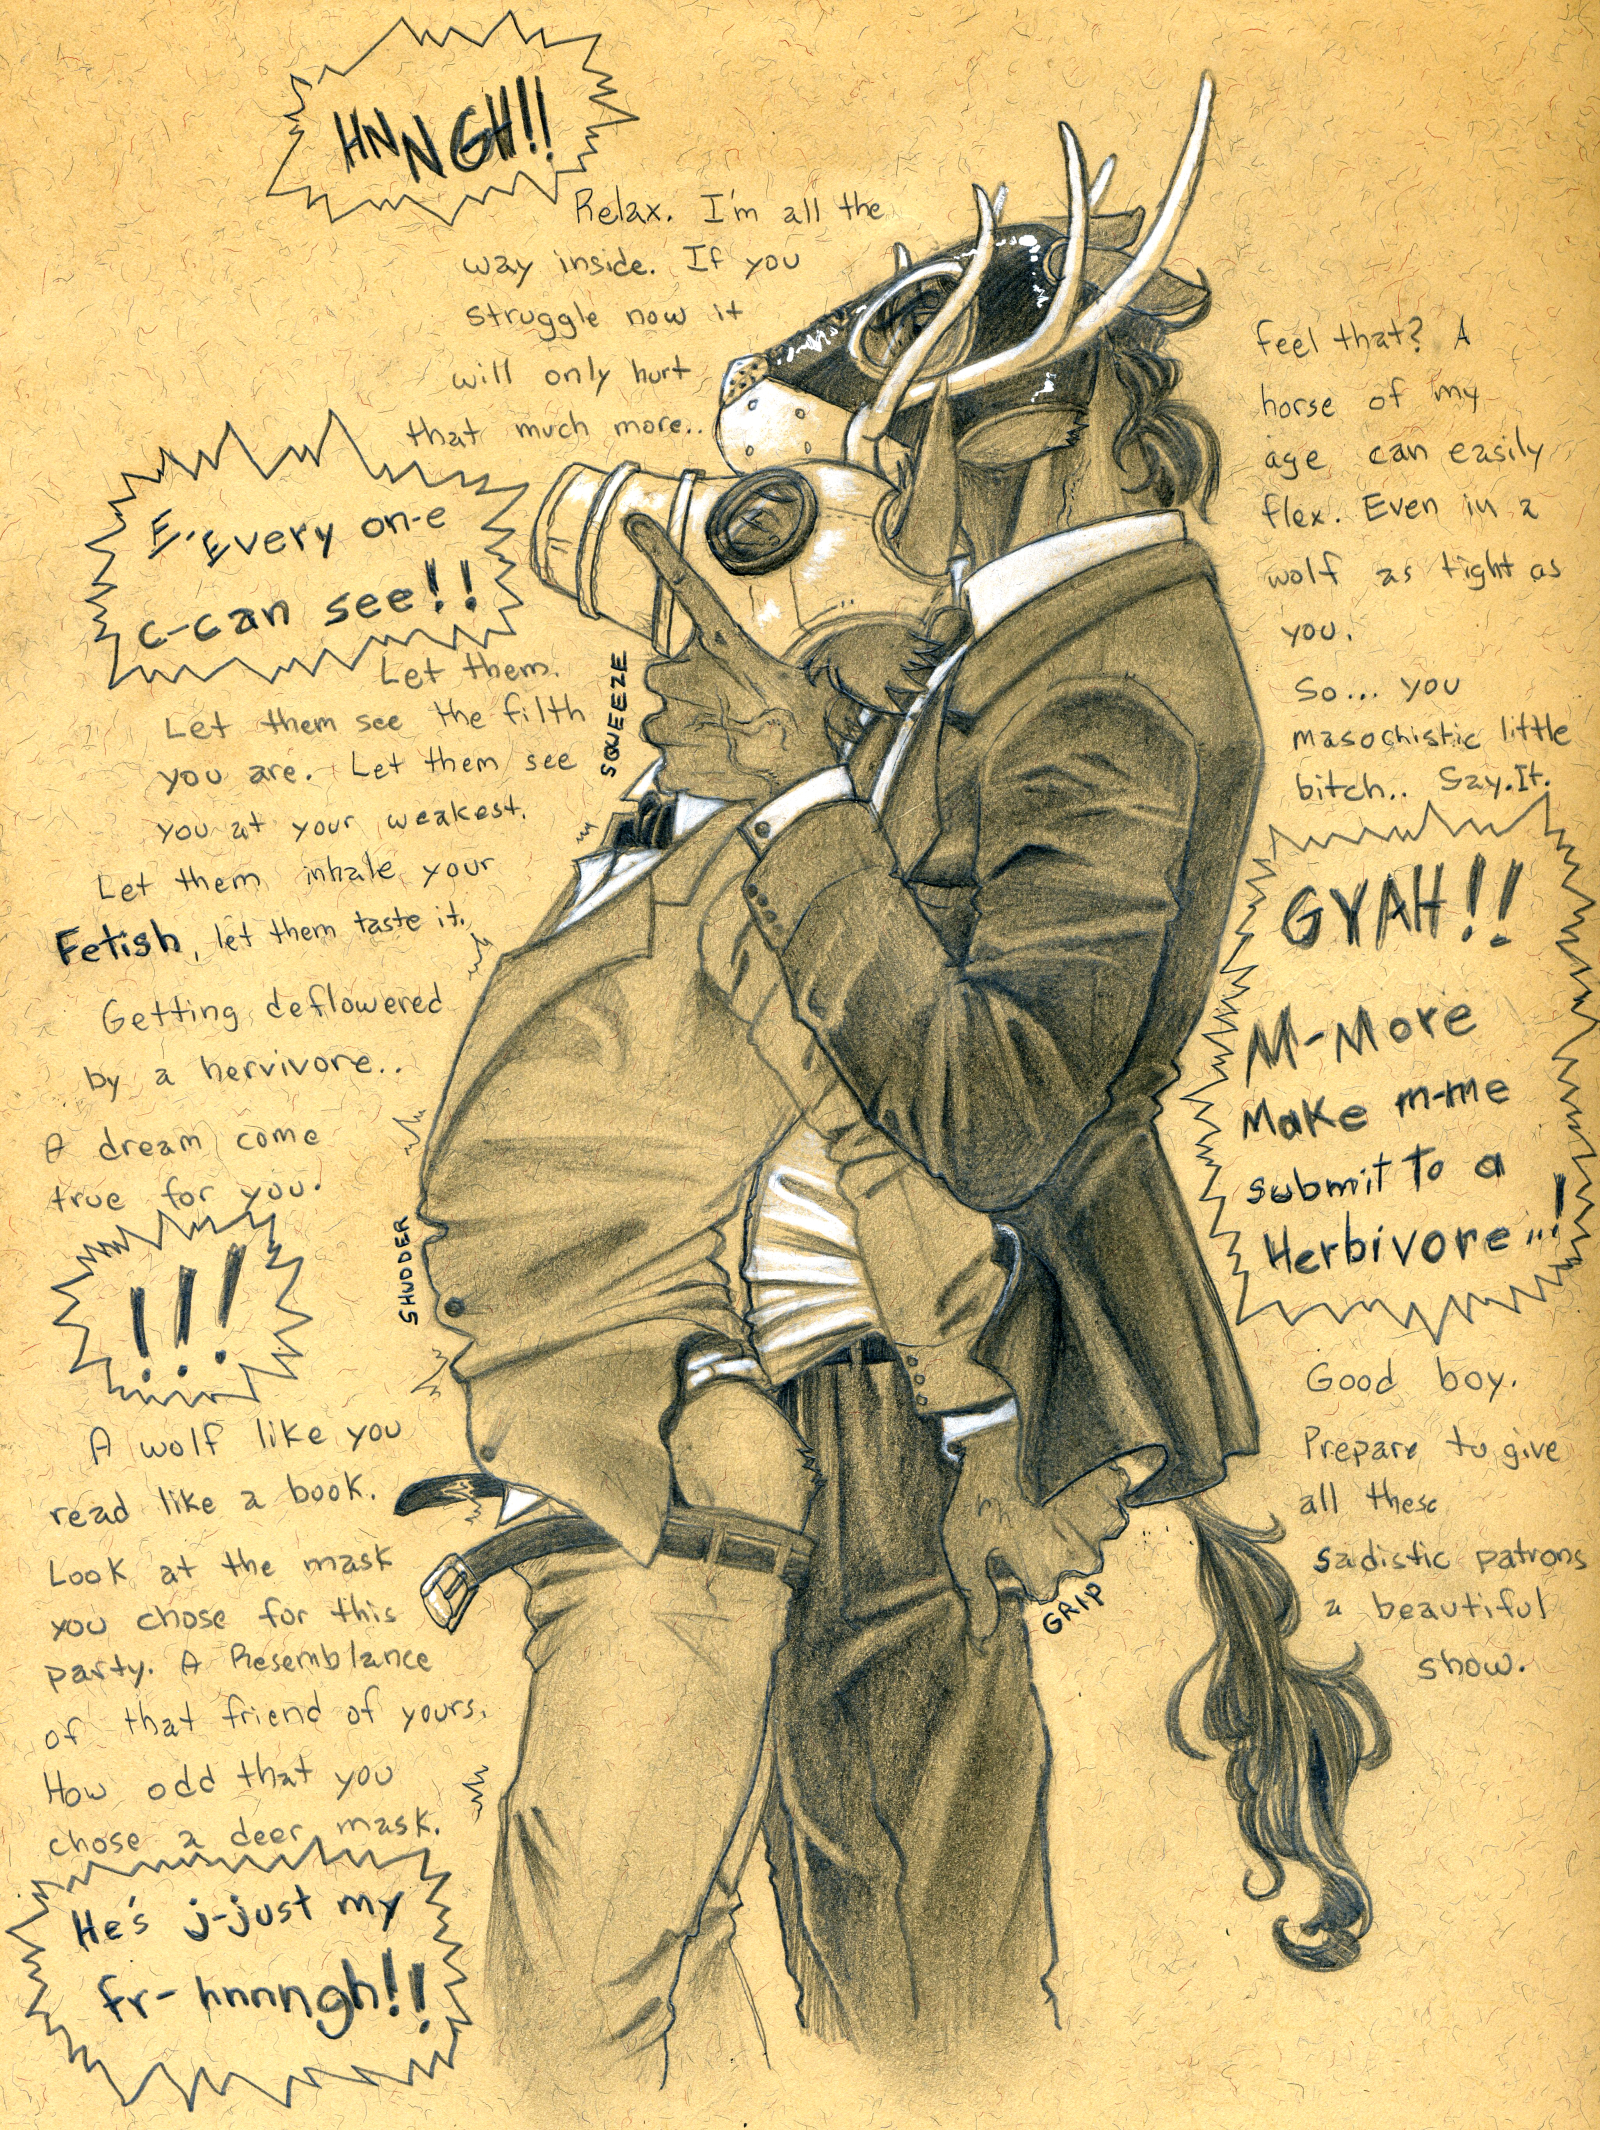 HNNGH!!
Relax. I'm all the
way inside. If you
struggle now it
will only hurt
that much more..
E-Every on-e
c-can see!!
Let them.
Let them see the filth
you are. Let them see
you at your weakest.
Let them inhale your
Fetish, let them taste it.
Getting deflowered
by a hervivore..
A dream come
true for you.
!!!
A wolf like you
read like a book.
Look at the mask
you chose for this
party. A Resemblance
of that friend of yours.
How odd that you
chose a deer mask.
He's j-just my
fr- hnnngh!!
SQUEEZE
SHUDDER
GRIP
feel that? A
horse of my
age can easily
flex. Even in a
wolf as tight as
you.
So... you
masochistic little
bitch.. Say.It.
GYAH!!
M-More
Make m-me
submit To a
Herbivore...!
Good boy.
Prepare to give
all these
sadistic patrons
a beautiful
show.